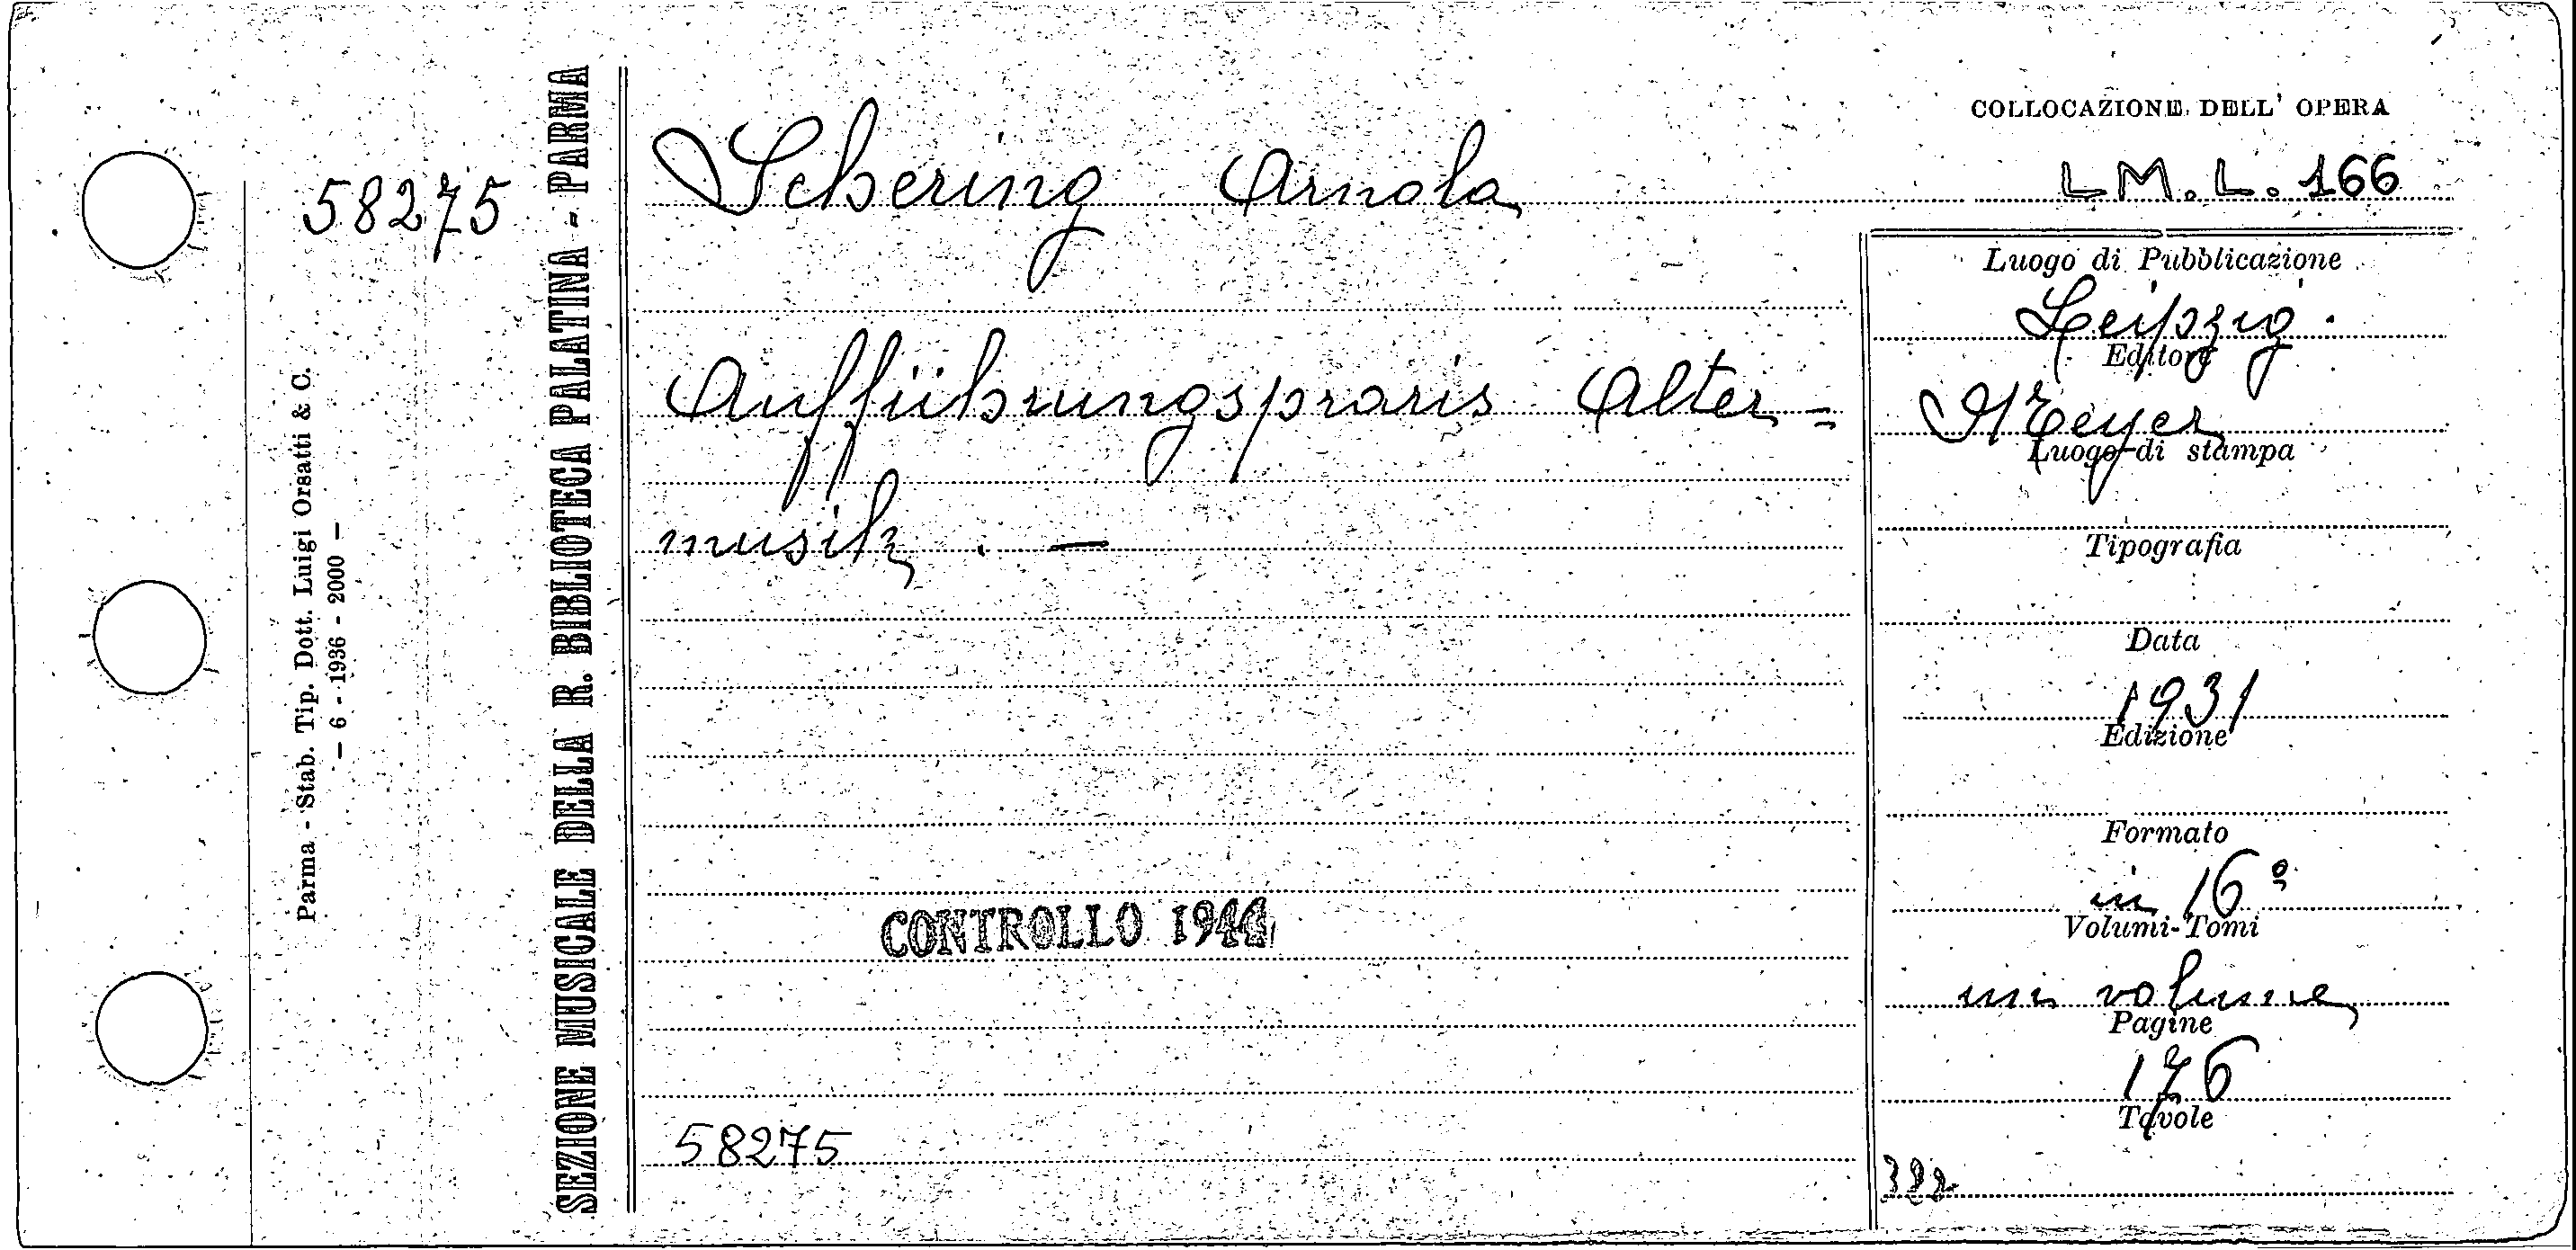 COLLOCAZIONE DELL' OPERA
LM.L.166
58275
Schering Arnold
Aufführungspraxis Alter=
musik. —
CONTROLLO 1944
58275
Luogo di Pubblicazione
Leipzig.
Editore
Meyer
Luogo di stampa
Tipografia
Data
1931
Edizione
Formato
in 16º
Volumi-Tomi
un volume
Pagine
176
Tavole
SEZIONE MUSICALE DELLA R. BIBLIOTECA PALATINA - PARMA
Parma - Stab. Tip. Dott. Luigi Orsatti & C.
— 6 - 1936 - 2000 —